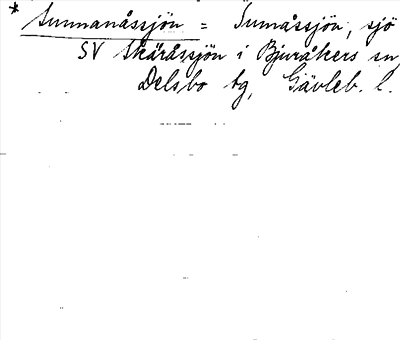 * Sunnanåssjön = Sunnåssjön, sjö
SV Skåråssjön i Bjuråkers sn,
Delsbo tg, Gävleb. l.